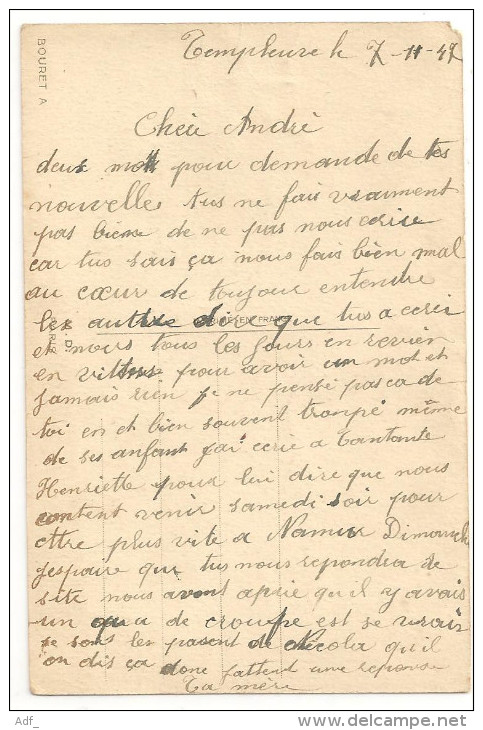 BOURET A
Templeuve le 7-11-47
Chèr Andrè
deus mott pour demande de tes
nouvelle tus ne fais vraiment
pas bienne de ne pas nous ecrise
car tus sais ça nous fais bien mal
au cœur de toujour entendre
les auttre dire que tus a ecri
et nous tous les jours en revien
en pour avoir un mot et
jamais rien je ne pensé pas ca de
toi en et bien souvent trompé même
de ses anfant j'ai ecrie a tantante
Henriette pour lui dire que nous
content venir samedi soir pour
ettre plus vite a Namur Dimanche
jespaire que tus nous repondra de
site nous avont aprie qu'il y avais
un de croupe est se vrair
se sons les parent de Nicola qu'il
on dis ça donc j'attent une reponse
Ta mère
Adf_